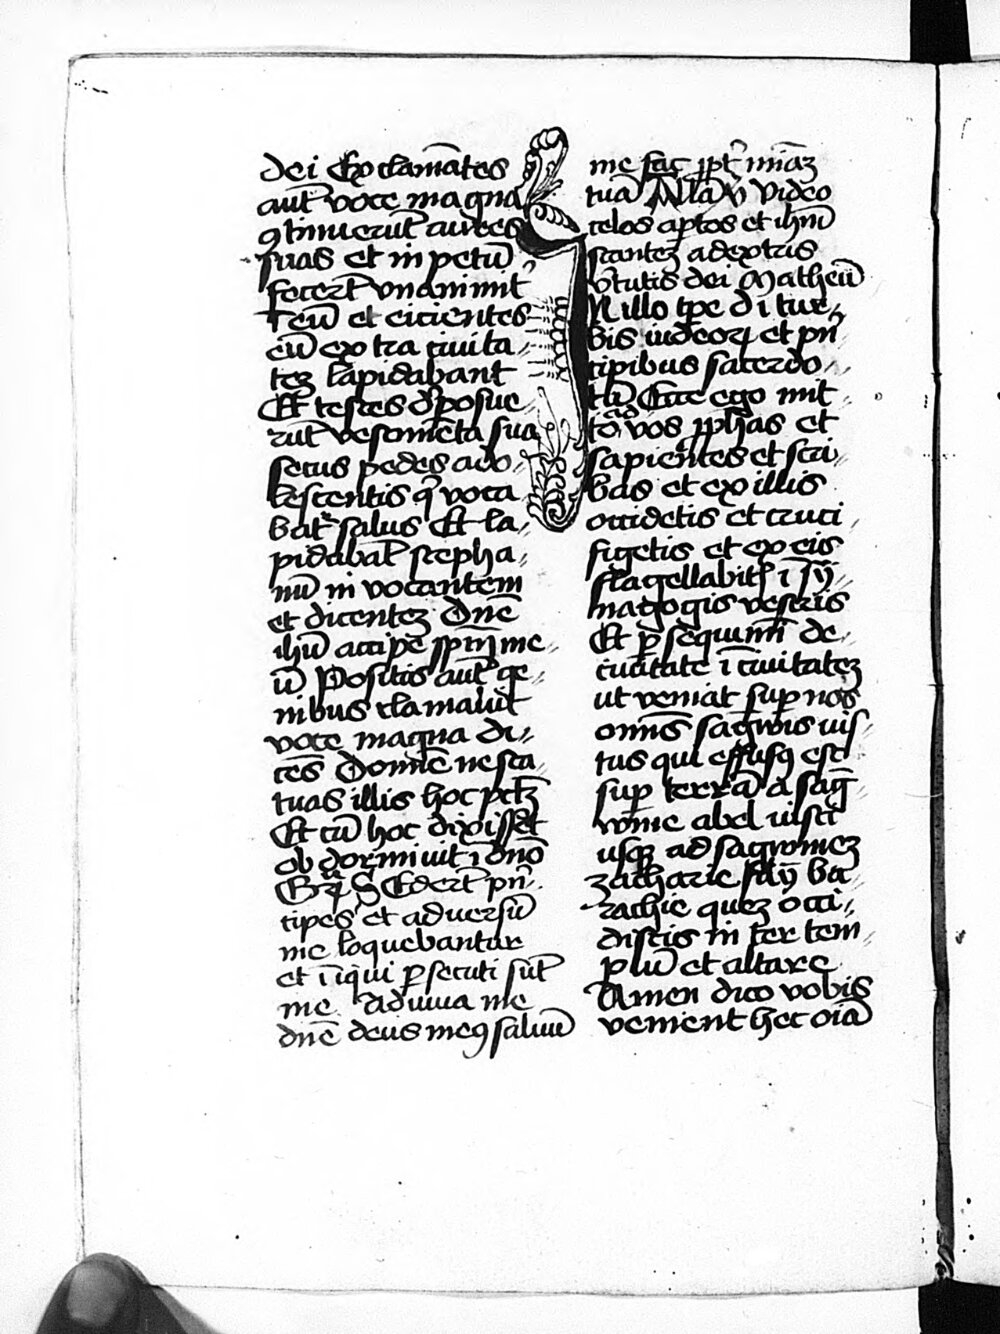 dei Exclamātes
aut̄ voce magna
ꝯtinuerūt aures
suas et inpetū
fecer̄t vnanimit̄
J eū et eicientes
eū extra ciuita
teꝫ lapidabant
Et testes dꝑosue
rūt vestimēta sua
secus pedes ado
lescentis q̄ voca
bat̄ salus Et la
pidabāt stepha
nū in vocantem
et dicenteꝫ Dn̄e
ihū accipe sp̄m me
ū Positis aut̄ ge
nibus clamauit
voce magna di
cēs Domīe ne sta
tuas illis hoc pctꝫ
Et cū hoc dixisset
obdormiuit ī dn̄o
Gr̄ S Eder̄t pn̄
cipes et aduersū
me loquebantur
et īiqui ꝑsecuti sūt
me Adiuua me
dn̄e deus meꝯ saluū
me fac ꝓpt̄ miā
tuā Alla v̄ Video
celos aꝑtos et ihm̄
stanteꝫ a dextris
v̄tutis dei Matheū
N illo tp̄e di tur
bis iudeoꝝ et pn̄
cipibus sacerdo
tū Ecce ego mit
to ad vos ꝓphas et
sapiētes et scri
bas et ex illis
occidetis et cruci
figetis et ex eis
flagellabitis ī sy
nagogis vestris
Et ꝑsequimī de
ciuitate ī ciuitateꝫ
ut veniat suꝑ nos
omīs sagwis ius
tus qui effusꝯ est
suꝑ terrā a sag
wine abel iusti
usqꝫ ad sagwineꝫ
zacharie filij ba
rachie queꝫ occi
distis inter tem
plū et altare
Amen dico vobis
venient hec oīa